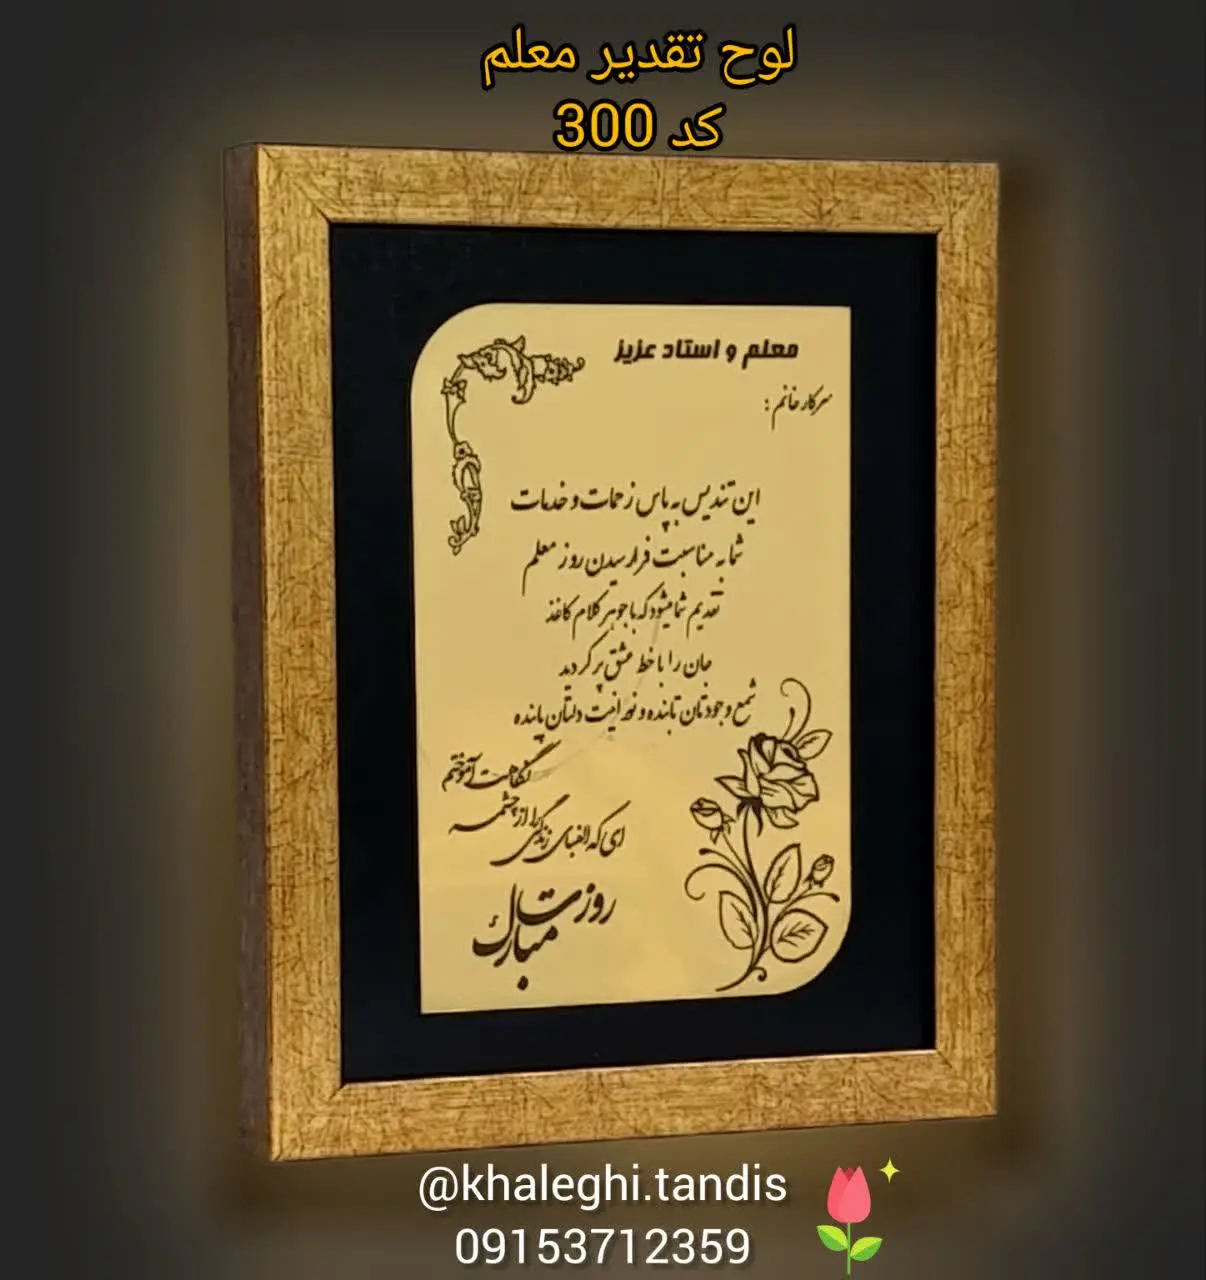 لوح تقدیر معلم
کد 300
معلم و استاد عزیز
سرکار خانم :
این تندیس به پاس زحمات و خدمات
شما به مناسبت فرارسیدن روز معلم
تقدیم شما میشود که با جوهر کلام کاغذ
جان را با خط عشق پر کردید
شمع وجودتان تابنده و نورانیت دلتان پاینده
ای که الفبای زندگی را از چشمه
نگاهت آموختم
روزت مبارک
@khaleghi.tandis
09153712359